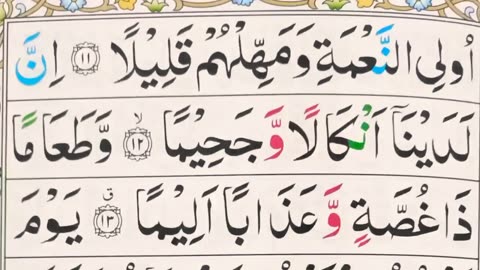 اُولِى النَّعْمَةِ وَمَهِّلْهُمْ قَلِيْلًا ۝۱۱ اِنَّ
لَدَيْنَاۤ اَنْكَالًا وَّجَحِيْمًا ۝۱۲ۙ وَّطَعَامًا
ذَا غُصَّةٍ وَّعَذَابًا اَلِيْمًا ۝۱۳ق يَوْمَ